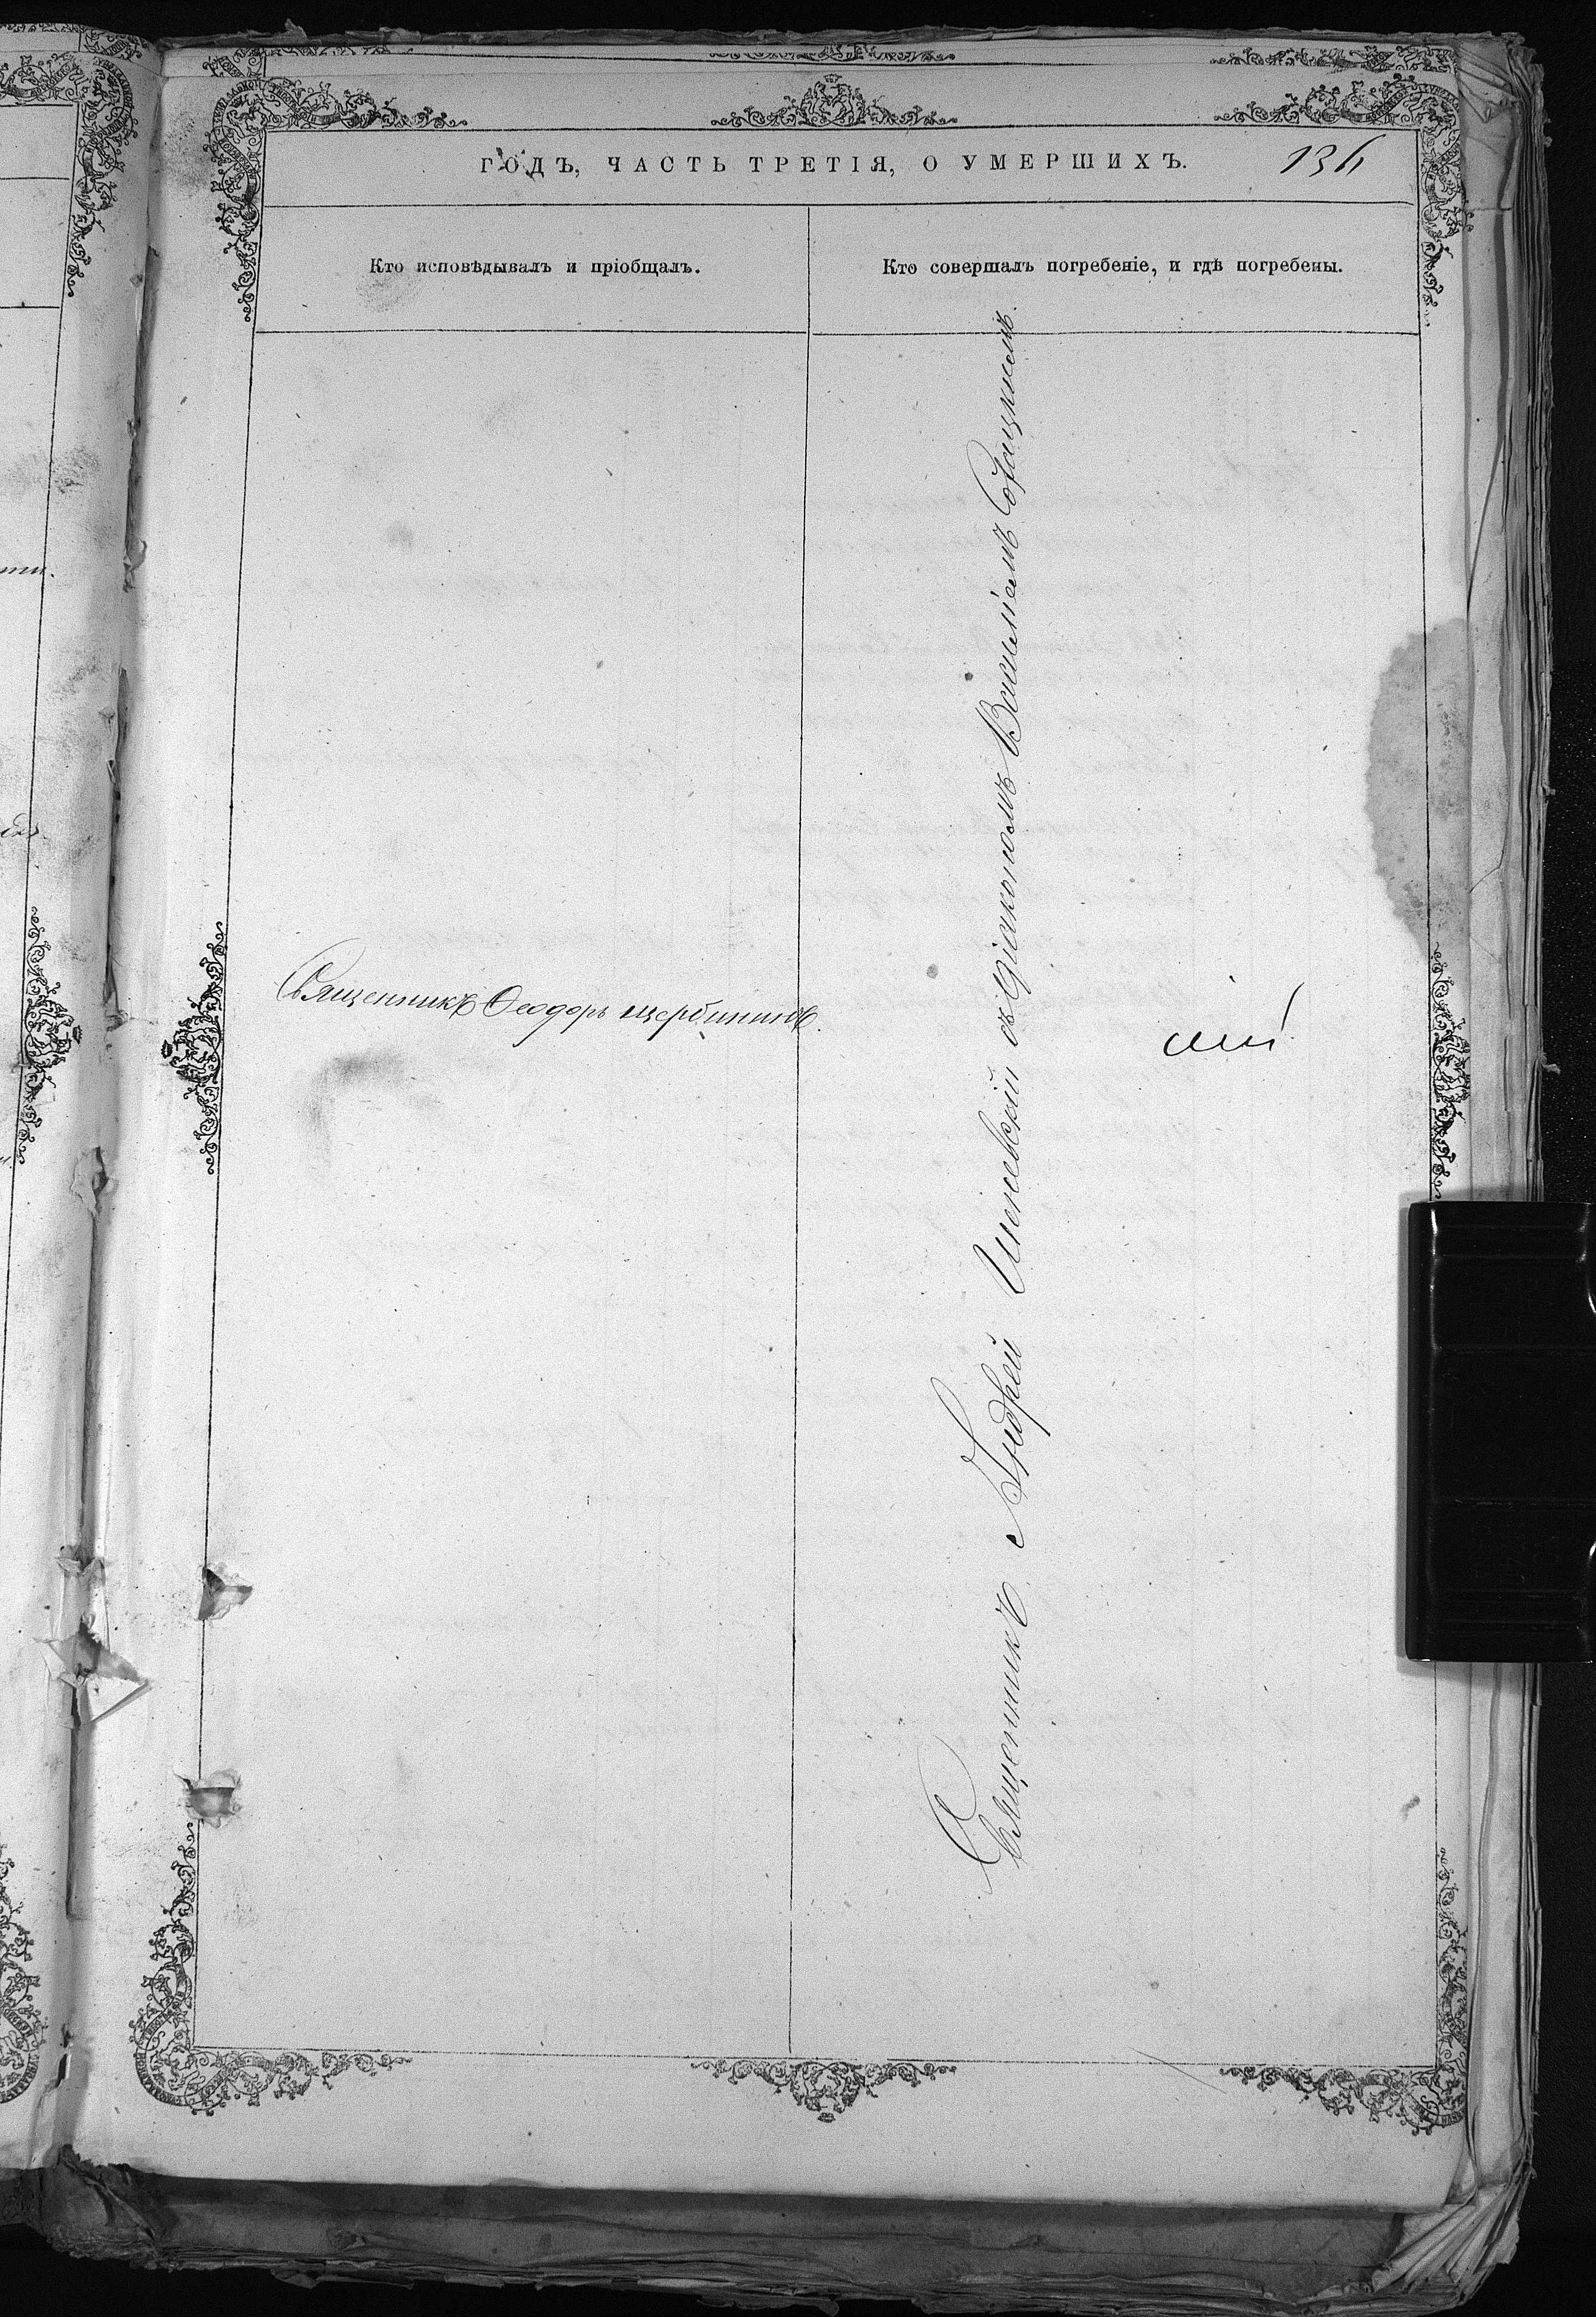 ГОДЪ, ЧАСТЬ ТРЕТІЯ, О УМЕРШИХЪ.
Кто исповѣдывалъ и пріобщалъ.
Кто совершалъ погребеніе, и гдѣ погребены.
Священникъ Ѳеодоръ Щербининъ.
Священникъ Андрей съ Діакономъ Василіемъ